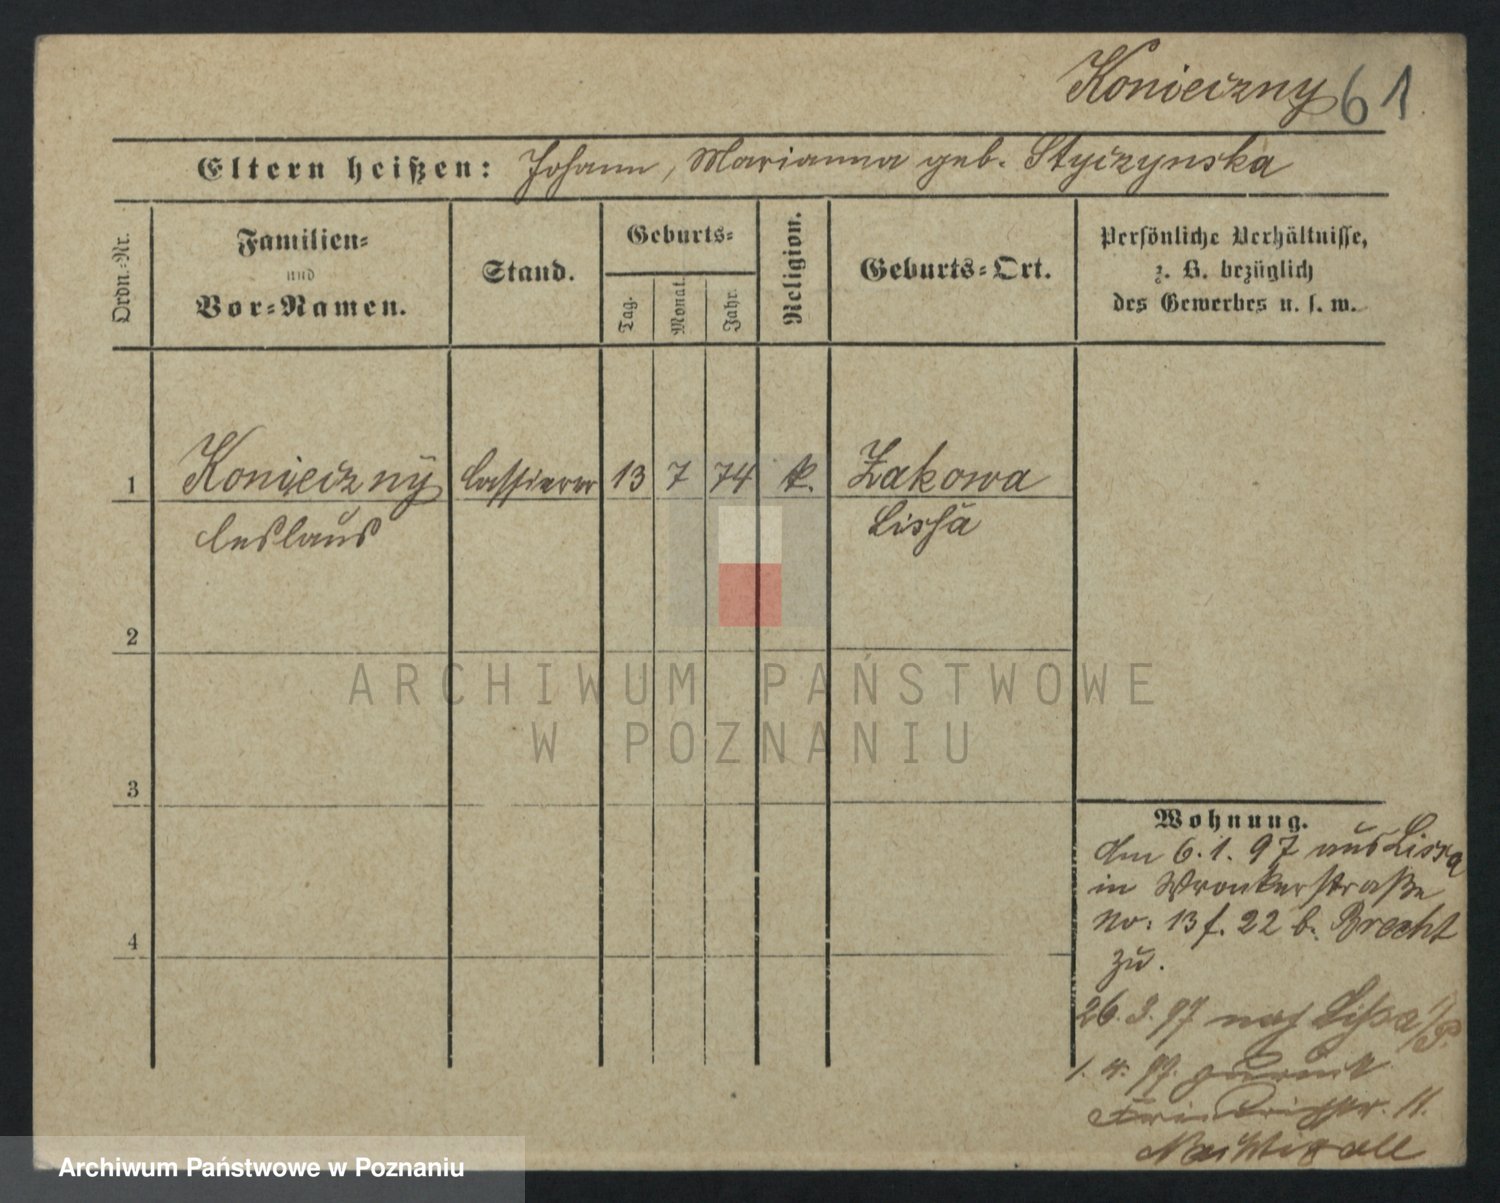 Konieczny 61
Eltern heißen: Johann, Marianna geb. Styczynska
Ordn.-Nr.
Familien-
und
Vor-Namen.
Stand.
Geburts-
Tag.
Monat.
Jahr.
Religion.
Geburts-Ort.
Persönliche Verhältnisse,
z. B. bezüglich
des Gewerbes u. s. w.
1 Konieczny Cassierer 13 7 74 k. Zakowa
Ceslaus Lissa
2
3
4
Wohnung.
Am 6. 1. 97 aus Lissa
in Wronkerstraße
No. 13 f. 22 b. Brecht
zu.
26. 3. 97 nach Lissa i/P.
1. 4. 97.
11.
ARCHIWUM PAŃSTWOWE
W POZNANIU
Archiwum Państwowe w Poznaniu